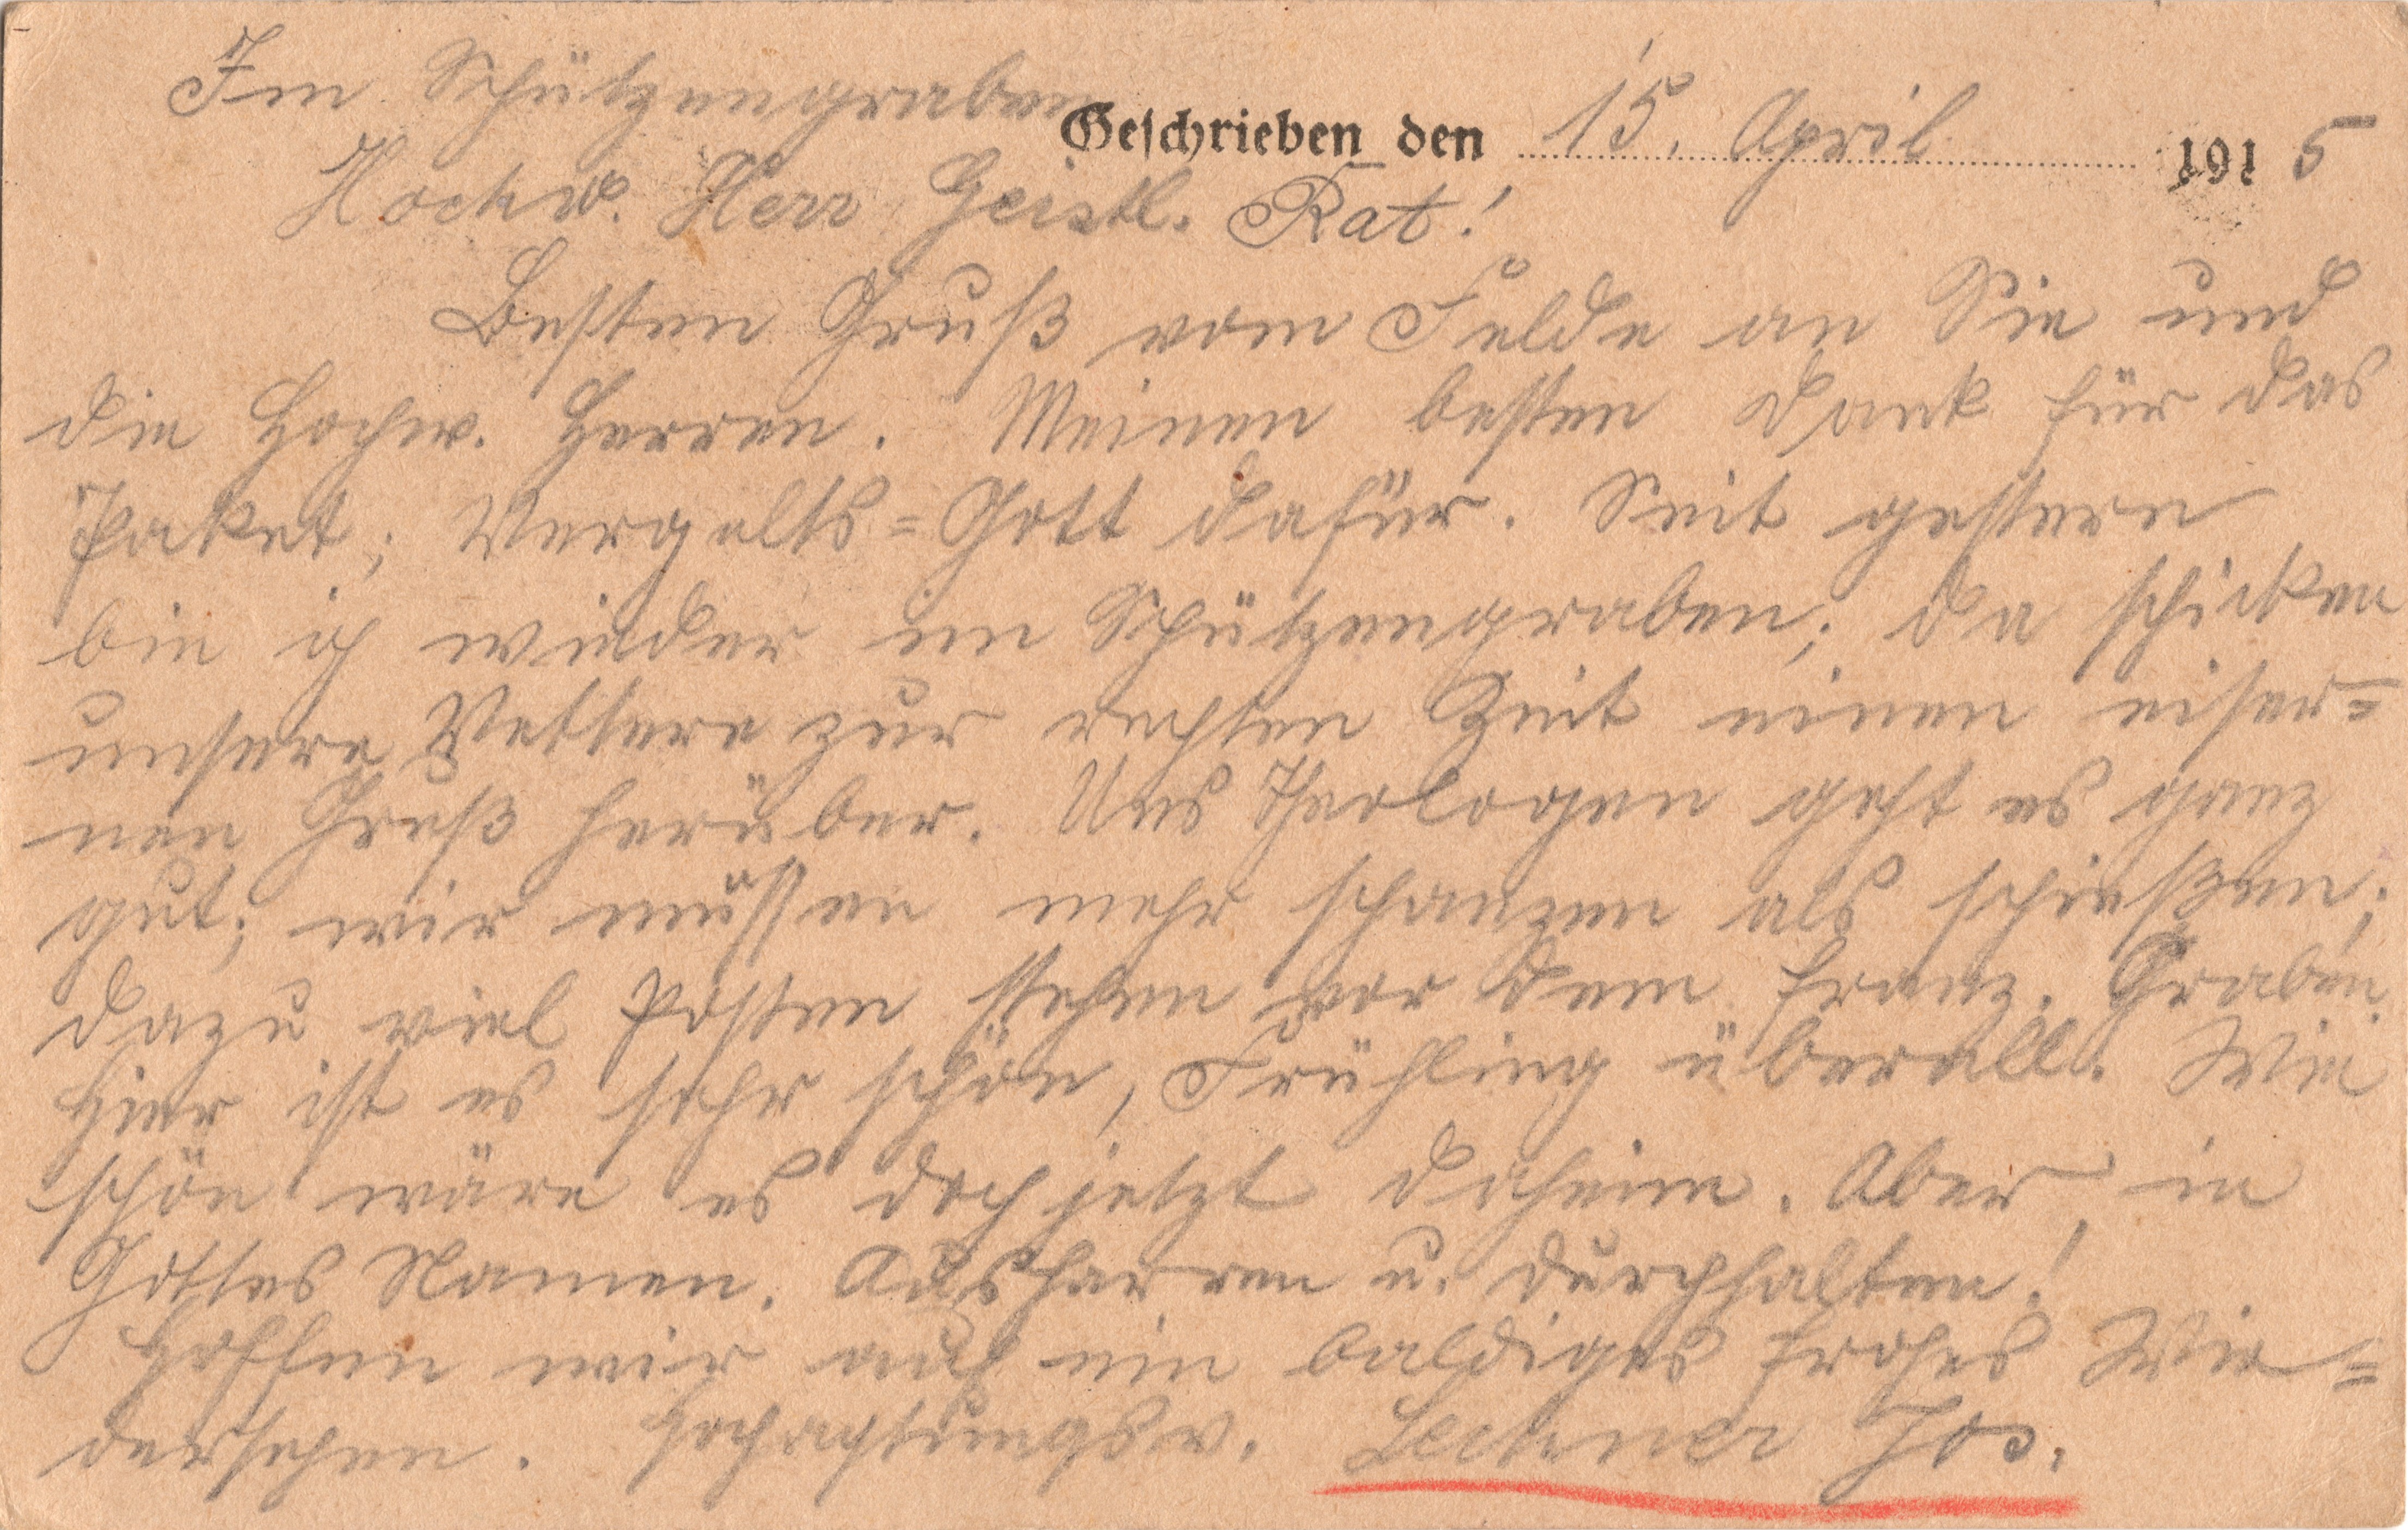 Im Schützengraben
Geschrieben den 15. April 1915
Hochw. Herr Geistl. Rat!
Besten Gruß vom Felde an Sie und
die Hochw. Herren. Meinen besten Dank für das
Paket; Vergelts=Gott dafür. Seit gestern
bin ich wieder im Schützengraben; da schicken
unsere Vettern zur rechten Zeit einen eiser=
nen Gruß herüber. Uns Theologen geht es ganz
gut; wir müssen mehr schanzen als schießen;
dazu viel Posten stehen vor dem franz. Graben.
Hier ist es sehr schön, Frühling überall. Wie
schön wäre es doch jetzt daheim. Aber, in
Gottes Namen. Ausharren u. durchhalten!
Hoffen wir auf ein baldiges frohes Wie=
dersehen. Hochachtungsv. Lechner Jos.